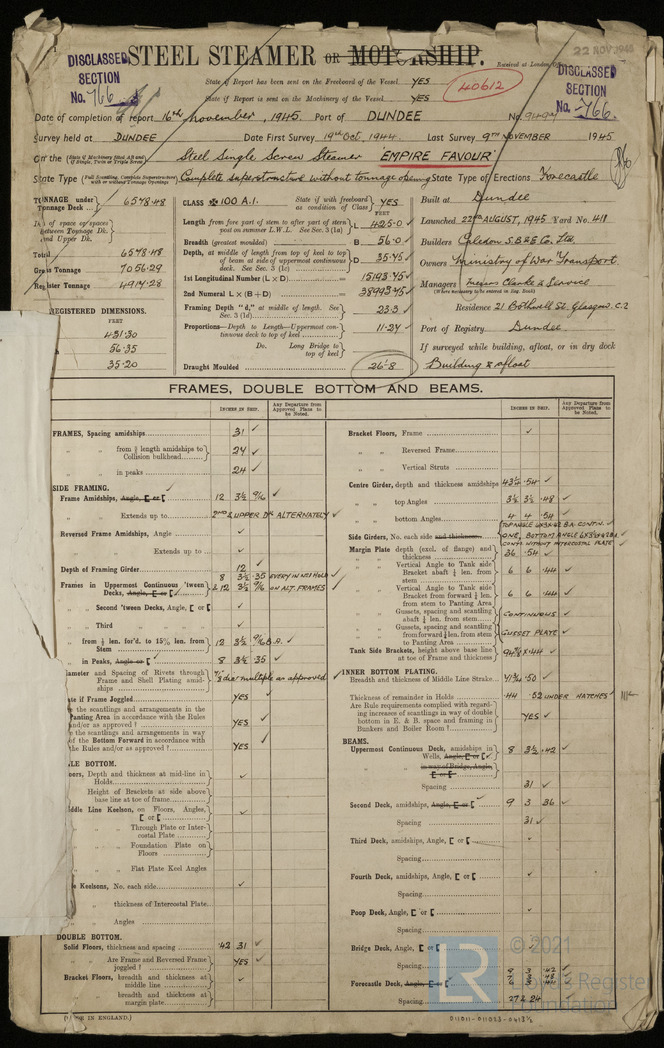 DISCLASSED SECTION No. 766.
STEEL STEAMER OR MOTORSHIP.
22 NOV 1945
Received at London
DISCLASSED SECTION No. 766.
State if Report has been sent on the Freeboard of the Vessel YES
40612
State if Report is sent on the Machinery of the Vessel YES
Date of completion of report 16th November, 1945. Port of DUNDEE No.
Survey held at DUNDEE Date First Survey 19th Oct, 1944. Last Survey 9TH NOVEMBER 1945
On the (State if Machinery fitted Aft and if Single, Twin or Triple Screw) Steel Single Screw Steamer 'EMPIRE FAVOUR'
State Type (Full Scantling, Complete Superstructure with or without Tonnage Openings) Complete Superstructure without tonnage opening State Type of Erections Forecastle
TONNAGE under Tonnage Deck ... 6578.48
Total 6578.48
Gross Tonnage 7056.29
Register Tonnage 4917.28
REGISTERED DIMENSIONS.
FEET
431.30
56.35
35.20
CLASS 100 A.1. State if with freeboard as condition of Class YES
FEET
Length from fore part of stem to after part of stern post on summer L.W.L. See Sec. 3 (1a) L 425.0
Breadth (greatest moulded) B 56.0
Depth, at middle of length from top of keel to top of beam at side of uppermost continuous deck. See Sec. 3 (1c) D 35.75
1st Longitudinal Number (L × D) = 15193.75
2nd Numeral L × (B + D) = 38993.75
Framing Depth "d," at middle of length. See Sec. 3 (1d) 23.3
Proportions—Depth to Length—Uppermost continuous deck to top of keel 11.24
Do. Long Bridge to top of keel
Draught Moulded 26.8
Built at Dundee
Launched 22nd AUGUST, 1945 Yard No. 411
Builders Caledon S.B & E Co. Ltd.
Owners Ministry of War Transport.
Managers Messrs Clarke & Service
(Where necessary to be entered in Reg. Book)
Residence 21 Bothwell St. Glasgow. C.2
Port of Registry Dundee.
If surveyed while building, afloat, or in dry dock
Building & afloat
FRAMES, DOUBLE BOTTOM AND BEAMS.
INCHES IN SHIP. Any Departure from Approved Plans to be Noted.
FRAMES, Spacing amidships 31
" " from ⅕ length amidships to Collision bulkhead 27
" " in peaks 24
SIDE FRAMING.
Frame Amidships, Angle, [ or [ 12 3½ 9/16
" Extends up to 2ND & UPPER DK ALTERNATELY
Reversed Frame Amidships, Angle
" " Extends up to
Depth of Framing Girder 12
Frames in Uppermost Continuous 'tween Decks, Angle, [ or [ 8 3½ .35 EVERY IN NO.1 HOLD
& 12 3½ 9/16 ON ALT. FRAMES
" Second 'tween Decks, Angle, [ or [
" Third " "
" from ⅕ len. for'd. to 15% len. from Stem 12 3½ 9/16 B.A.
" in Peaks, Angle or [ 8 3½ .35
Diameter and Spacing of Rivets through Frame and Shell Plating amidships ⅞ dia multiple as approved
State if Frame Joggled YES
Panting Area in accordance with the Rules and/or as approved? YES
of the Bottom Forward in accordance with the Rules and/or as approved? YES
Floors, Depth and thickness at mid-line in Holds
Height of Brackets at side above base line at toe of frame
Middle Line Keelson, on Floors, Angles, [ or [
" " Through Plate or Intercostal Plate
" " Foundation Plate on Floors
" " Flat Plate Keel Angles
Keelsons, No. each side
" thickness of Intercostal Plate
" Angles
DOUBLE BOTTOM.
Solid Floors, thickness and spacing .42 31
" Are Frame and Reversed Frame joggled? YES
Bracket Floors, breadth and thickness at middle line
" breadth and thickness at margin plate
INCHES IN SHIP. Any Departure from Approved Plans to be Noted.
Bracket Floors, Frame
" " Reversed Frame
" " Vertical Struts
Centre Girder, depth and thickness amidships 43¼ .54
" top Angles 3½ 3½ .48
" bottom Angles 4 4 .54
Side Girders, No. each side and thickness
Margin Plate depth (excl. of flange) and thickness 36 .54
" Vertical Angle to Tank side Bracket abaft ¼ len. from stem 6 6 .44
" Vertical Angle to Tank side Bracket from forward ¼ len. from stem to Panting Area 6 6 .44
" Gussets, spacing and scantling abaft ¼ len. from stem CONTINUOUS
" Gussets, spacing and scantling from forward ¼ len. from stem to Panting Area GUSSET PLATE
Tank Side Brackets, height above base line at toe of Frame and thickness
INNER BOTTOM PLATING.
Breadth and thickness of Middle Line Strake
Thickness of remainder in Holds .44 .52 UNDER HATCHES
Are Rule requirements complied with regarding increase of scantlings in way of double bottom in E. & B. space and framing in Bunkers and Boiler Room? YES
BEAMS.
Uppermost Continuous Deck, amidships in Wells, Angle, [ or [ 8 3½ .42
" " in way of Bridge, Angle, [ or [
Spacing 31
Second Deck, amidships, Angle, [ or [ 9 3 36
Spacing 31
Third Deck, amidships, Angle, [ or [
Spacing
Fourth Deck, amidships, Angle, [ or [
Spacing
Poop Deck, Angle, [ or [
Spacing
Bridge Deck, Angle, [ or [
Spacing
Forecastle Deck, Angle, [ or [
Spacing 27 & 24
(MADE IN ENGLAND.)
© 2021
LR
Lloyd's Register
Foundation
011011-011023-0413½